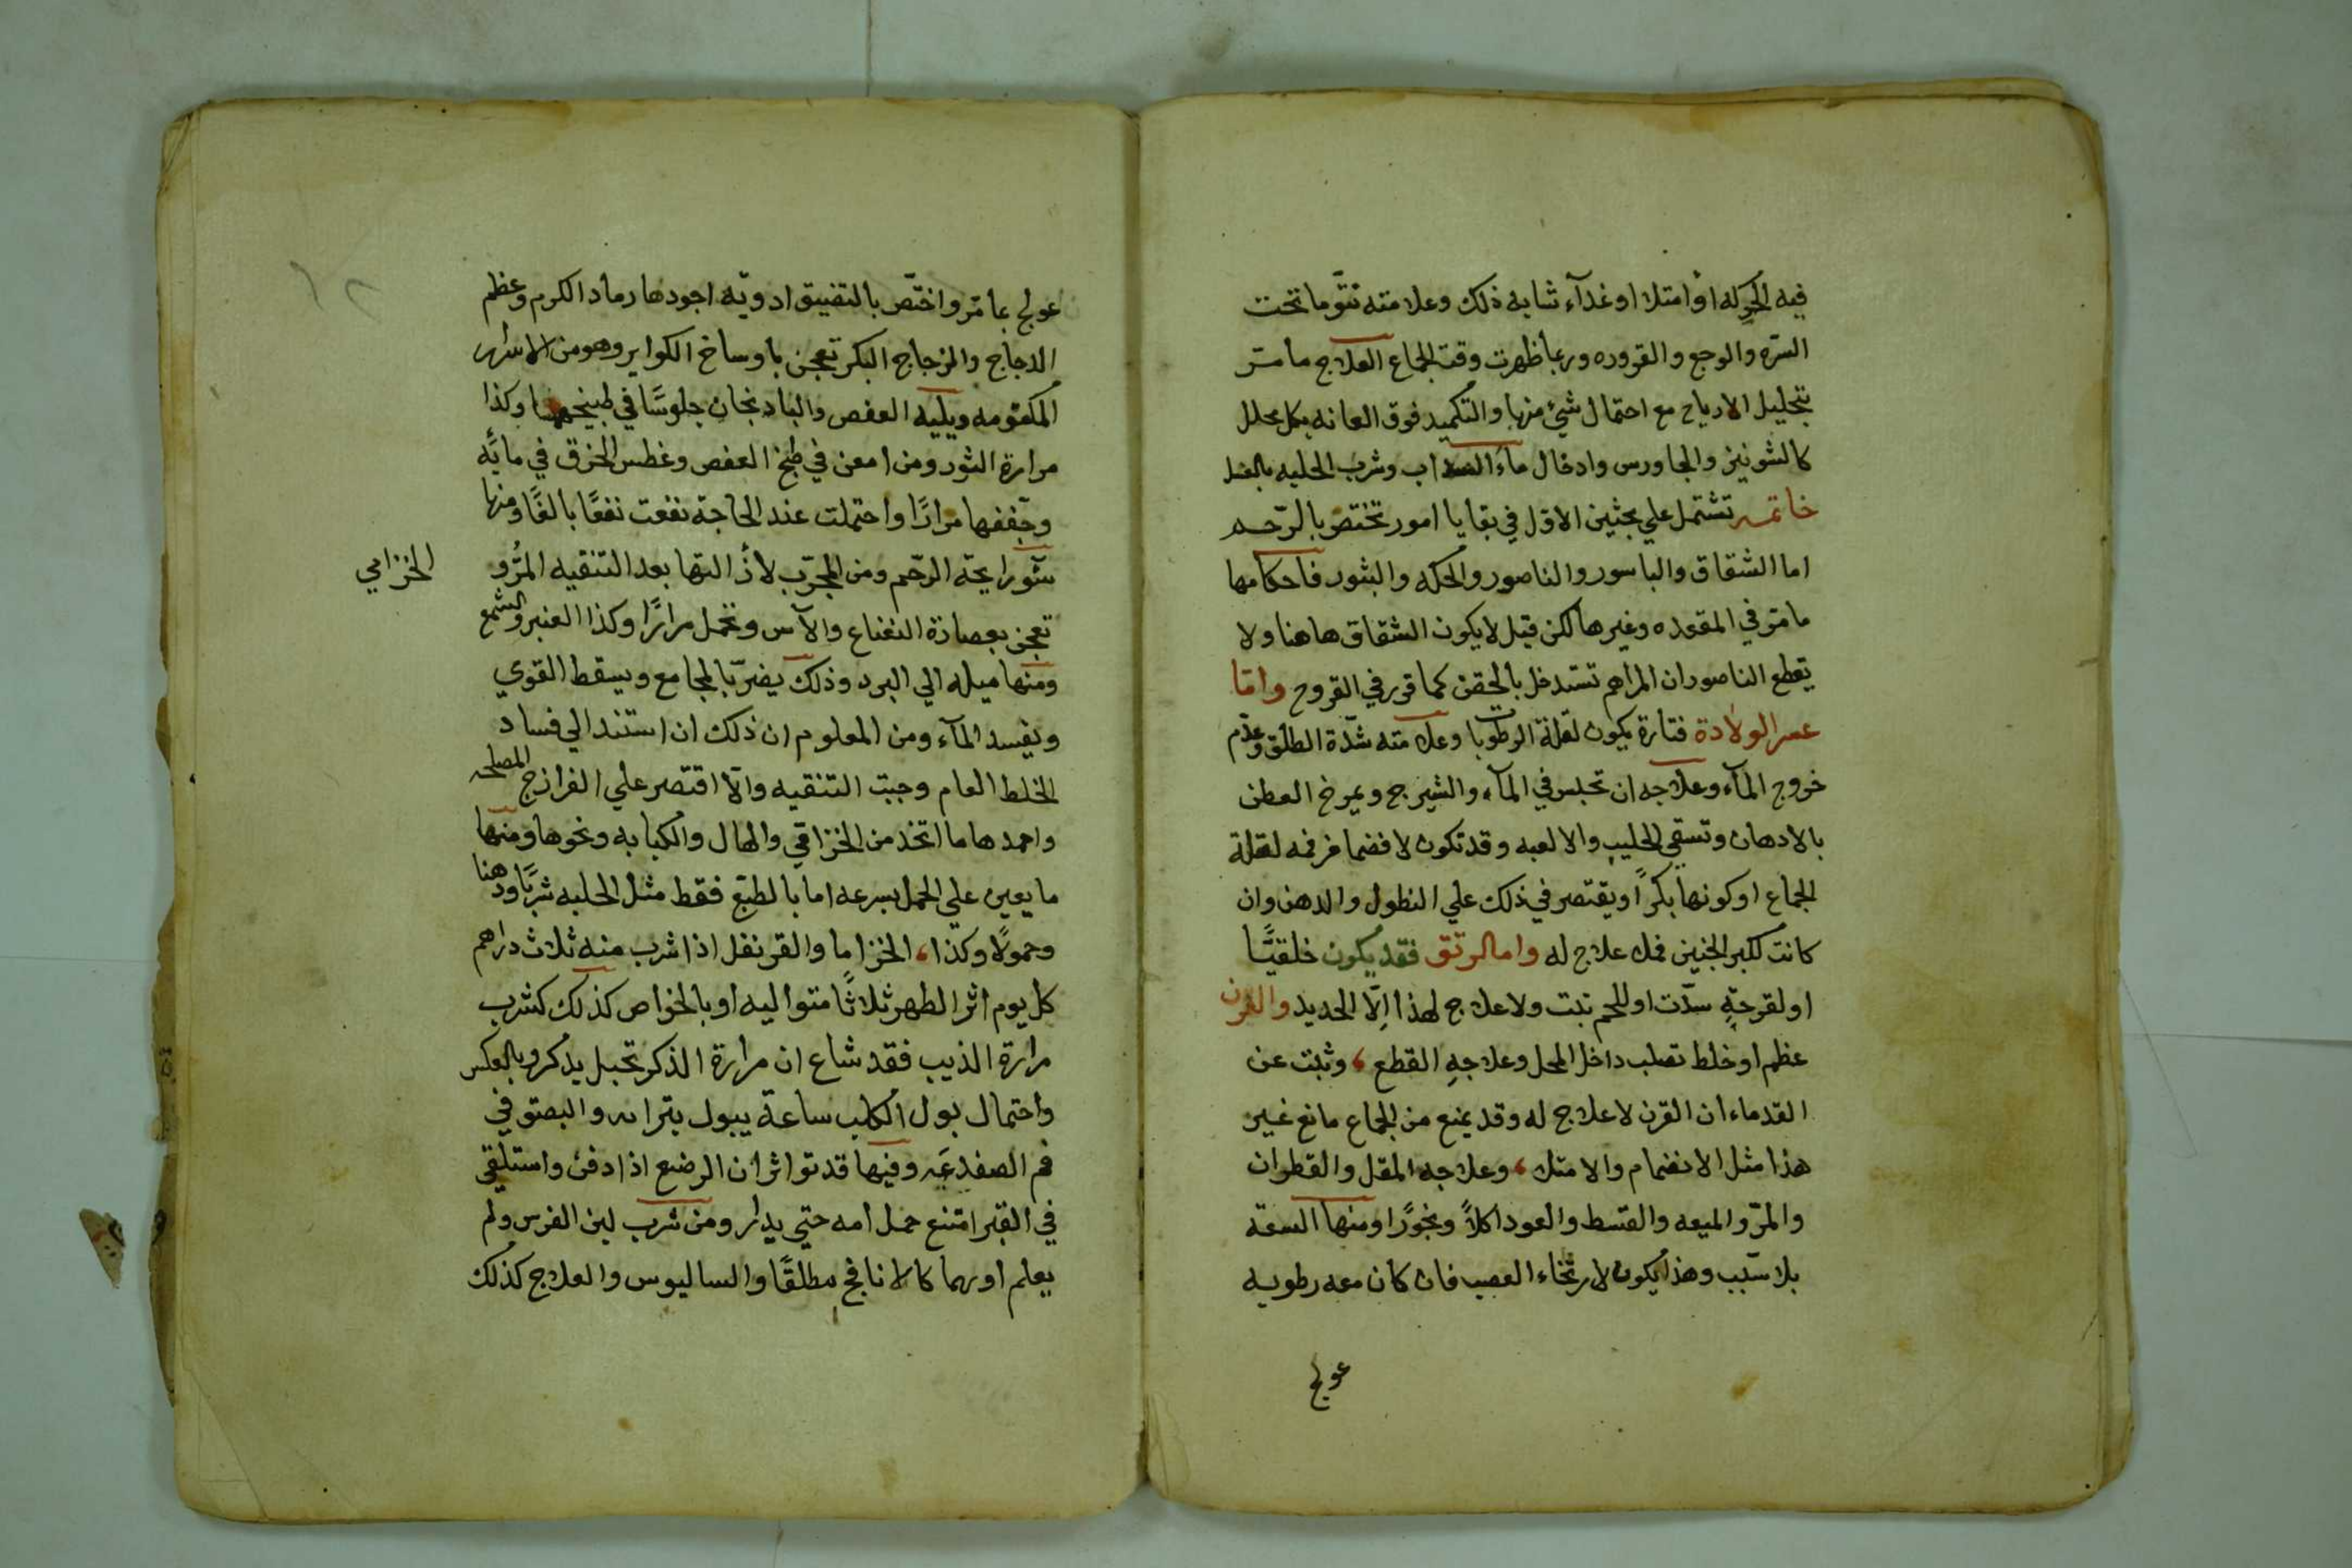 فيه الحركه او امتلا او غدآء شابه ذلك وعلامته نتوّ ما تحت
السّره والوجع والقروره وربما ظهرت وقت الجماع العلاج ما مّر
بتحليل الارياح مع احتمال شئ منها والتكميد فوق العانه بكل محلل
كالشونيز والجاورس وادخال مآء السداب وشرب الحلبه بالعسل
خاتمه تشتمل علي بحثين الاوّل في بقايا امور تختصّ بالرّحم
اما الشقاق والباسور والناصور والحكه والبثور فاحكامها
ما مّر في المقعده وغيرها لكن قيل لا يكون الشقاق هاهنا ولا
يقطع الناصور ان المراهم تستدخل بالحقن كما قرر في القروح وامّا
عسر الولادة فتارة يكون لقلة الرطوبا وعلامته شدّة الطلق وعدم
خروج المآء وعلاجه ان تجلس في المآء والشيرج ويمرخ العطن
بالادهان وتسقي الحليب والالعبه وقد تكون لانضمام فمه لقلة
الجماع او كونها بكراً ويقتصر في ذلك علي النطول والدهن وان
كانت لكبر الجنين فلا علاج له واما الرتق فقد يكون خلقيًّا
او لقرحةٍ سدّت او للحم نبت ولا علاج لهذا اِلّا الحديد والقرن
عظم او خلط تصلب داخل المحل وعلاجهِ القطع، وثبت عن
القدماء ان القرن لا علاج له وقد يمنع من الجماع مانع غير
هذا مثل الانضمام والامتلا، وعلاجه المقل والقطران
والمرّ والميعه والقسط والعود اكلاً وبخورًا ومنها السعة
بلا سبب وهذا يكون لارتخاء العصب فان كان معه رطوبه
عولج
عولج بما مّر واختّص بالتضييق ادويّه اجودها رماد الكرم وعظم
الدجاج والزجاج البكر تعجن باوساخ الكواير وهو من الاسرار
المكتومه ويليه العفص والبادنجان جلوسًا في طبيخهما وكذا
مرارة الثور ومن امعن في طبخ العفص وغطس الخرق في مايّه
وجففها مرارًا واحتملت عند الحاجة نفعت نفعًا بالغًا ومنها
سّو رايحة الرحّم ومن المجرّب لاذالتها بعد التنقيه المرُّ و
الخزامي
تعجن بعصارة النعناع والآس وتحمل مرارًا وكذا العنبر والشمع
ومنها ميله الي البرد وذلك يضرّ بالمجامع ويسقط القوي
ويفسد المآء ومن المعلوم ان ذلك ان استند الي فساد
الخلط العام وجبت التنقيه والّا اقتصر علي الفرازج المصلحه
واحمدها ما اتخذ من الخزامي والهال والكبابه ونحوها ومنها
ما يعين علي الحمل بسرعه اما بالطبّع فقط مثل الحلبه شربًا ودهنا
وحمولًا وكذا، الخزاما والقرنفل اذا شرب منه ثلاث دراهم
كل يوم اثر الطهر ثلاثًا متواليه او بالخواص كذلك كشرب
مرارة الذيب فقد شاع ان مرارة الذكر تحبل بذكر وبالعكس
واحتمال بول الكلب ساعة يبول بترابه والبصق في
فم الضفدعَه وفيها قد تواتر ان الرضع اذا دفن واستلقي
في القبر امتنع حمل امه حتي يدار ومن شرب لبن الفرس ولم
يعلم اورهما كالانافح مطلقًا والساليوس والعلاج كذلك